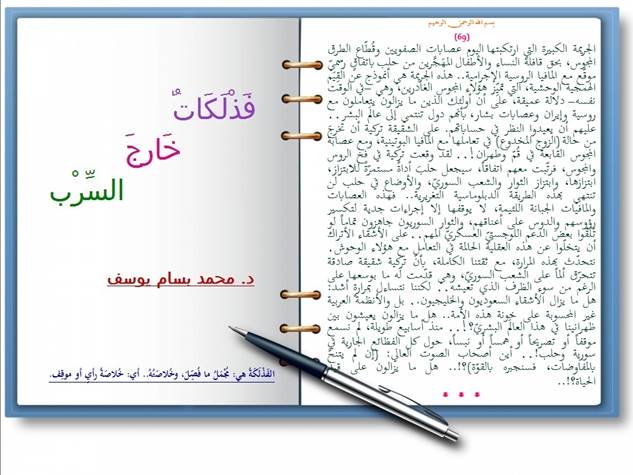 بسم الله الرحمن الرحيم
(69)
الجريمة الكبيرة التي ارتكبتها اليوم عصابات الصفويين وقُطّاع الطرق
المجوس، بحق قافلة النساء والأطفال المهجَّرين من حلب باتفاقٍ رسميّ
موقَّع مع المافيا الروسية الإجرامية.. هذه الجريمة هي أنموذج عن القِيَم
الهمجية الوحشية، التي تميّز هؤلاء المجوس الغادرين، وهي –في الوقت
نفسه– دلالة عميقة، على أن أولئك الذين ما يزالون يتعاملون مع
روسية وإيران وعصابات بشار، بأنهم دول تنتمي إلى عالم البشر..
عليهم أن يعيدوا النظر في حساباتهم. على الشقيقة تركية أن تخرجَ
من حالة (الزوج المخدوع) في تعاملها مع المافيا البوتينية، ومع عصابة
المجوس القابعة في قُمّ وطهران!.. لقد وقعت تركية في فخ الروس
والمجوس، فرتّبت معهم اتفاقاً، سيجعل حلبَ أداةً مستمرّةً للابتزاز،
ابتزازها، وابتزاز الثوار والشعب السوريّ، والأوضاع في حلب لن
تنتهي بهذه الطريقة الدبلوماسية التغريرية.. فهذه العصابات
والمافيات الجبانة اللئيمة، لا يوقفها إلا إجراءات جدية لتكسير
رؤوسهم والدوس على أعناقهم، والثوار السوريون جاهزون تماماً لو
تلقّوا بعضَ الدعم اللوجستيّ العسكريّ المهم.. على الأشقاء الأتراك
أن يتخلّوا عن هذه العقلية الحالمة في التعامل مع هؤلاء الوحوش.
نتحدّث بهذه المرارة، مع ثقتنا الكاملة، بأنّ تركية شقيقة صادقة
تتحرّق ألماً على الشعب السوريّ، وهي قدّمت له ما بوسعها على
الرغم من سوء الظرف الذي تعيشه.. لكننا نتساءل بمرارةٍ أشد:
هل ما يزال الأشقاء السعوديون والخليجيون.. بل والأنظمة العربية
غير المحسوبة على خونة هذه الأمة.. هل ما يزالون يعيشون بين
ظهرانينا في هذا العالم البشريّ؟!.. منذ أسابيع طويلة، لم نسمع
موقفاً أو تصريحاً أو همساً أو نبساً، حول كل الفظائع الجارية في
سورية وحلب!.. أين أصحاب الصوت العالي: (إن لم يتنحَّ
بالمفاوضات، فسنجبره بالقوّة)؟!.. هل ما يزالون على قيد
الحياة؟!..
فَذْلَكَاتٌ
خَارِجَ
السِّرْب
د. محمد بسام يوسف
الفَذْلَكَة هي: مُجْمَلُ ما فُصِّلَ، وخُلاصَتُهُ.. أي: خُلاصَةُ رأيٍ أو موقِف.